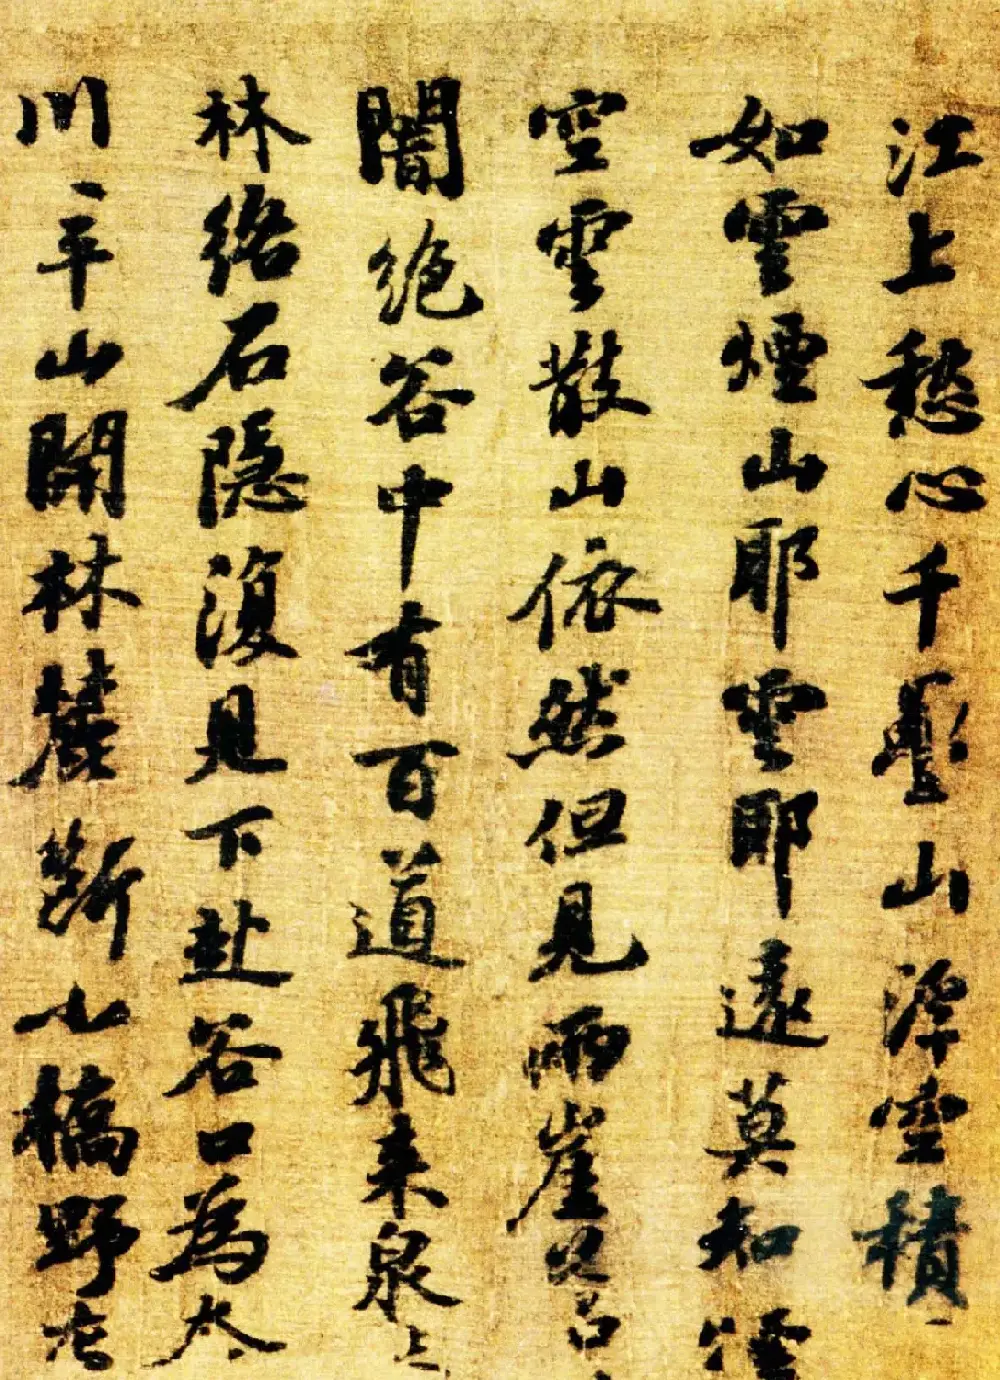 江上愁心千疊山浮空積
如雲煙山耶雲耶遠莫知煙
空雲散山依然但見兩崖蒼
闇絕谷中有百道飛來泉
林絡石隱復見下赴谷口為
川〻平山開林麓斷小橋野店